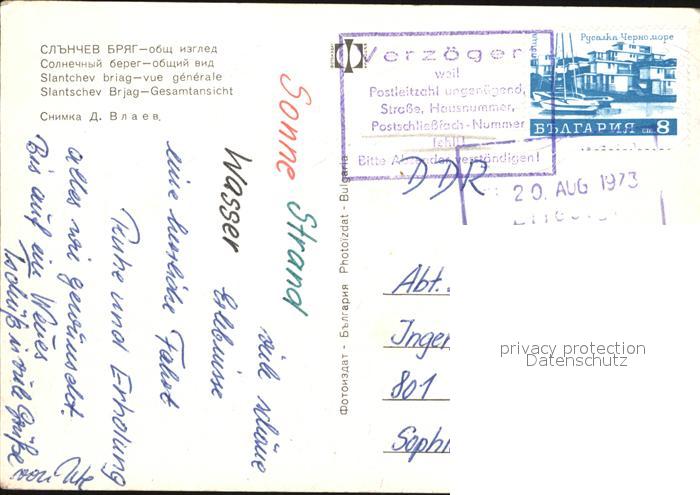 СЛЪНЧЕВ БРЯГ—общ изглед
Солнечный берег—общий вид
Slantchev briag—vue générale
Slantschev Brjag—Gesamtansicht
Снимка Д. Влаев.
Sonne
Strand
Wasser
viel schöne
Erlebnisse
eine herrliche Fahrt
Ruhe und Erholung
alles wie gewünscht.
Bis auf ein Neues
Tschüß u. viele Grüße
von Ute
Фотоиздат - България Photoizdat - Bulgaria
Verzögert
weil
Postleitzahl ungenügend,
Straße, Hausnummer,
Postschließfach-Nummer
fehlt!
Bitte Absender verständigen!
Русалка Черноморе
БЪЛГАРИЯ ст. 8
DDR
20 AUG 1973
Abt.
Inger
801
Sophi
privacy protection
Datenschutz